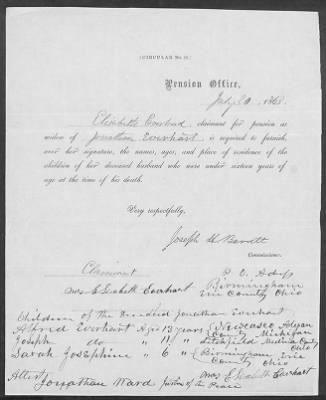 (CIRCULAR No. 11.)
Pension Office,
July 1863.
Elizabeth Everhard, claimant for pension as
widow of Jonathan Everhart, is required to furnish,
over her signature, the names, ages, and place of residence of the
children of her deceased husband who were under sixteen years of
age at the time of his death.
Very respectfully,
Joseph H Barrett
Commissioner.
Claimant P. O. Adrss
Mrs Elisabeth Everhart Birmingham
Erie County Ohio
Children of the Jonathan Everhart
Alfred Everhart Age 13 years Allegan
County Michigan
Joseph do " 11 " Litchfield Medina County
Ohio
Sarah Josephine " 6 " Birmingham Erie
County Ohio
Mrs Elisabeth Everhart
Attest Jonathan Ward Justice of the Peace